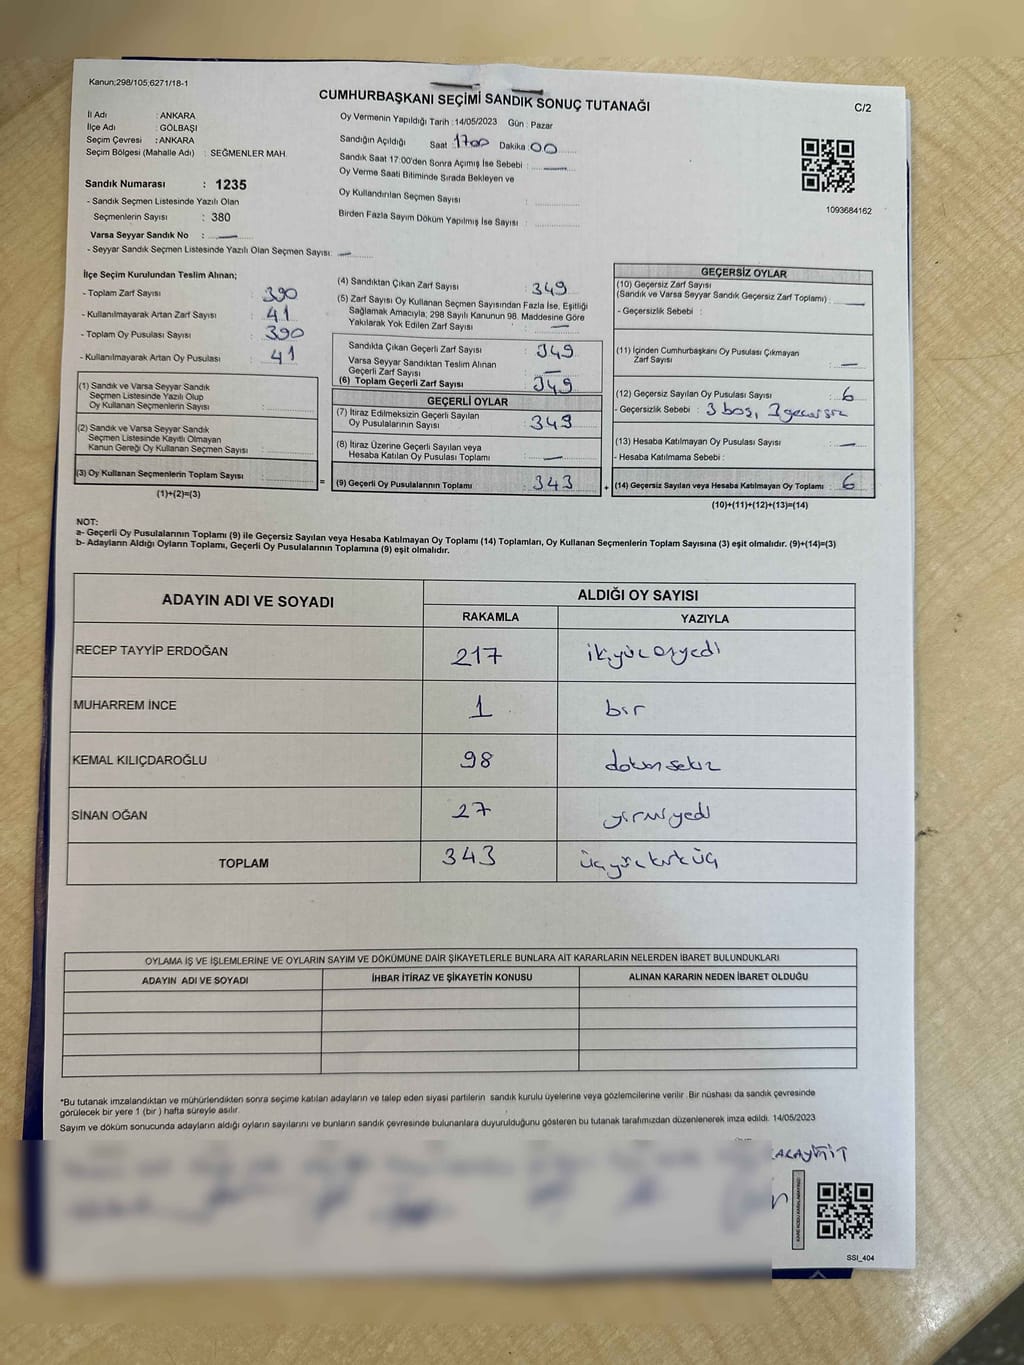 Kanun:298/105,6271/18-1
CUMHURBAŞKANI SEÇİMİ SANDIK SONUÇ TUTANAĞI
C/2
İl Adı : ANKARA
İlçe Adı : GÖLBAŞI
Seçim Çevresi : ANKARA
Seçim Bölgesi (Mahalle Adı) : SEĞMENLER MAH.
Sandık Numarası : 1235
- Sandık Seçmen Listesinde Yazılı Olan
Seçmenlerin Sayısı : 380
Varsa Seyyar Sandık No :
- Seyyar Sandık Seçmen Listesinde Yazılı Olan Seçmen Sayısı:
Oy Vermenin Yapıldığı Tarih : 14/05/2023 Gün : Pazar
Sandığın Açıldığı Saat 1700 Dakika 00
Sandık Saat 17:00'den Sonra Açımış İse Sebebi :
Oy Verme Saati Bitiminde Sırada Bekleyen ve
Oy Kullandırılan Seçmen Sayısı :
Birden Fazla Sayım Döküm Yapılmış İse Sayısı :
1093684162
İlçe Seçim Kurulundan Teslim Alınan;
- Toplam Zarf Sayısı : 390
- Kullanılmayarak Artan Zarf Sayısı : 41
- Toplam Oy Pusulası Sayısı : 390
- Kullanılmayarak Artan Oy Pusulası : 41
(1) Sandık ve Varsa Seyyar Sandık
Seçmen Listesinde Yazılı Olup
Oy Kullanan Seçmenlerin Sayısı :
(2) Sandık ve Varsa Seyyar Sandık
Seçmen Listesinde Kayıtlı Olmayan
Kanun Gereği Oy Kullanan Seçmen Sayısı :
(3) Oy Kullanan Seçmenlerin Toplam Sayısı :
(1)+(2)=(3)
=
(4) Sandıktan Çıkan Zarf Sayısı : 349
(5) Zarf Sayısı Oy Kullanan Seçmen Sayısından Fazla İse, Eşitliği
Sağlamak Amacıyla; 298 Sayılı Kanunun 98. Maddesine Göre
Yakılarak Yok Edilen Zarf Sayısı :
Sandıkta Çıkan Geçerli Zarf Sayısı : 349
Varsa Seyyar Sandıktan Teslim Alınan
Geçerli Zarf Sayısı :
(6) Toplam Geçerli Zarf Sayısı : 349
GEÇERLİ OYLAR
(7) İtiraz Edilmeksizin Geçerli Sayılan
Oy Pusulalarının Sayısı : 349
(8) İtiraz Üzerine Geçerli Sayılan veya
Hesaba Katılan Oy Pusulası Toplamı :
(9) Geçerli Oy Pusulalarının Toplamı : 343
+
GEÇERSİZ OYLAR
(10) Geçersiz Zarf Sayısı
(Sandık ve Varsa Seyyar Sandık Geçersiz Zarf Toplamı) :
- Geçersizlik Sebebi :
(11) İçinden Cumhurbaşkanı Oy Pusulası Çıkmayan
Zarf Sayısı :
(12) Geçersiz Sayılan Oy Pusulası Sayısı : 6
- Geçersizlik Sebebi : 3 boş, 3 geçersiz
(13) Hesaba Katılmayan Oy Pusulası Sayısı :
- Hesaba Katılmama Sebebi :
(14) Geçersiz Sayılan veya Hesaba Katılmayan Oy Toplamı : 6
(10)+(11)+(12)+(13)=(14)
NOT:
a- Geçerli Oy Pusulalarının Toplamı (9) ile Geçersiz Sayılan veya Hesaba Katılmayan Oy Toplamı (14) Toplamları, Oy Kullanan Seçmenlerin Toplam Sayısına (3) eşit olmalıdır. (9)+(14)=(3)
b- Adayların Aldığı Oyların Toplamı, Geçerli Oy Pusulalarının Toplamına (9) eşit olmalıdır.
ADAYIN ADI VE SOYADI
ALDIĞI OY SAYISI
RAKAMLA YAZIYLA
RECEP TAYYİP ERDOĞAN 217 ikiyüzonyedi
MUHARREM İNCE 1 bir
KEMAL KILIÇDAROĞLU 98 doksansekiz
SİNAN OĞAN 27 yirmiyedi
TOPLAM 343 üçyüzkırküç
OYLAMA İŞ VE İŞLEMLERİNE VE OYLARIN SAYIM VE DÖKÜMÜNE DAİR ŞİKAYETLERLE BUNLARA AİT KARARLARIN NELERDEN İBARET BULUNDUKLARI
ADAYIN ADI VE SOYADI İHBAR İTİRAZ VE ŞİKAYETİN KONUSU ALINAN KARARIN NEDEN İBARET OLDUĞU
*Bu tutanak imzalandıktan ve mühürlendikten sonra seçime katılan adayların ve talep eden siyasi partilerin sandık kurulu üyelerine veya gözlemcilerine verilir. Bir nüshası da sandık çevresinde
görülecek bir yere 1 (bir) hafta süreyle asılır.
Sayım ve döküm sonucunda adayların aldığı oyların sayılarını ve bunların sandık çevresinde bulunanlara duyurulduğunu gösteren bu tutanak tarafımızdan düzenlenerek imza edildi. 14/05/2023
SSI_404